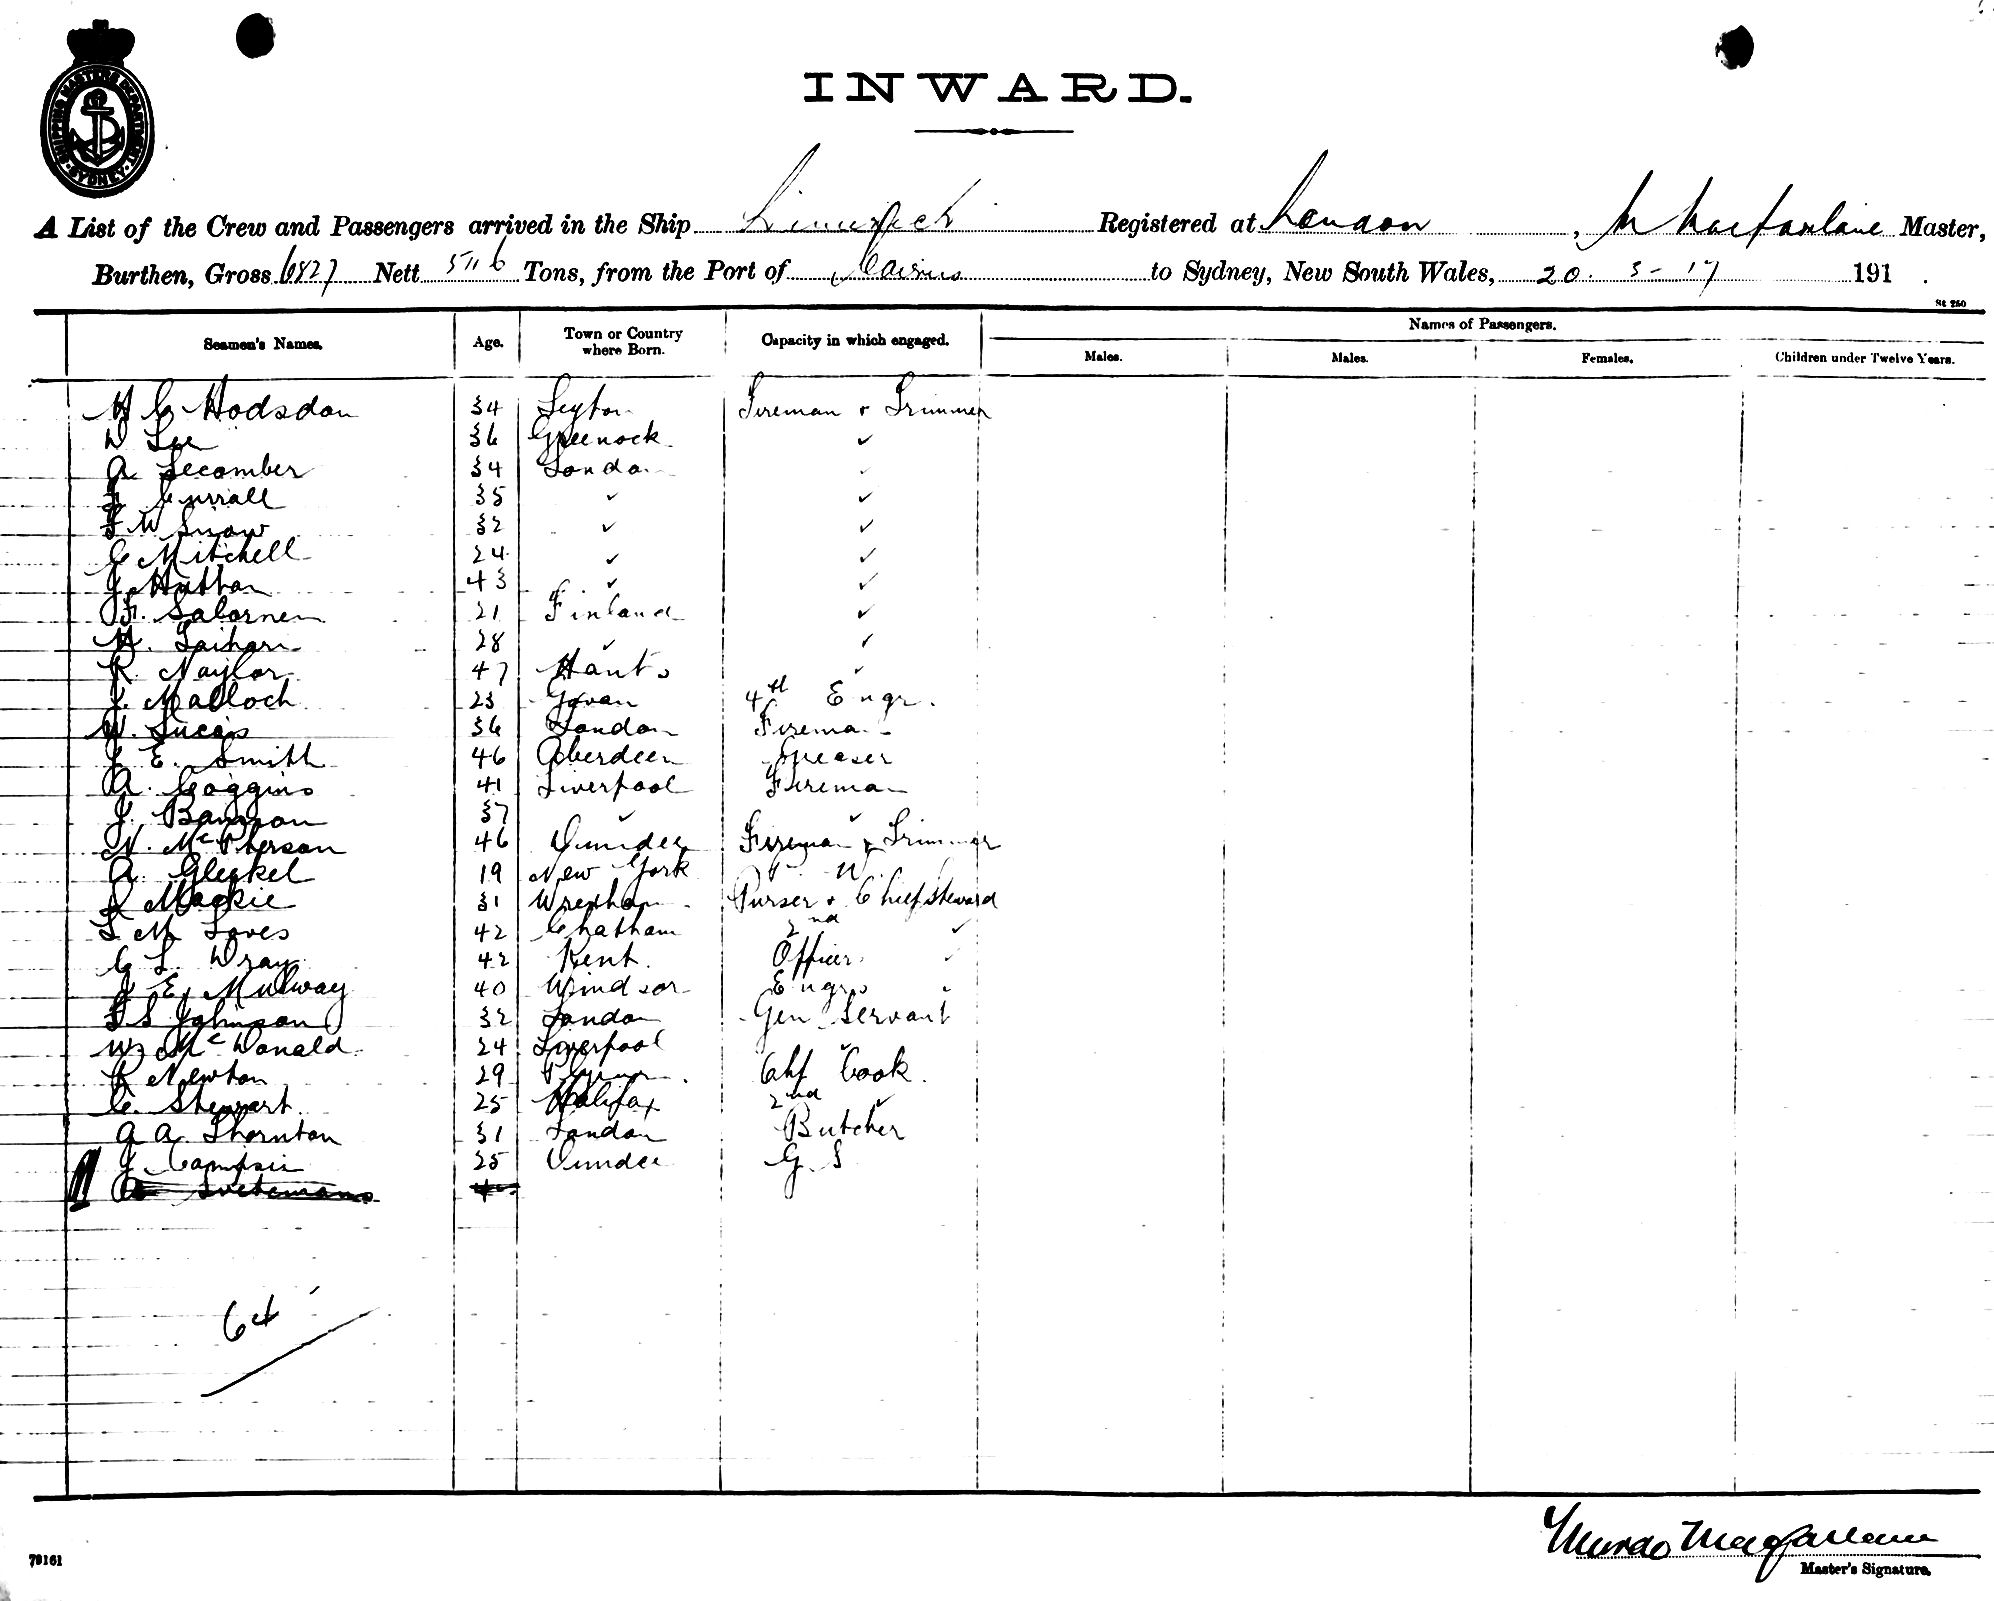 SHIPPING MASTERS DEPARTMENT SYDNEY
INWARD.
A List of the Crew and Passengers arrived in the Ship Limerick Registered at London, M Macfarlane Master,
Burthen, Gross 6827 Nett 5116 Tons, from the Port of Cairns to Sydney, New South Wales, 20. 3-17 191 .
St 250
Seamen's Names. Age. Town or Country where Born. Capacity in which engaged. Names of Passengers.
Males. Males. Females. Children under Twelve Years.
H C Hodsdon 34 Leyton Fireman & Trimmer
D Lee 36 Greenock ✓
A Secomber 34 London ✓
J Currall 35 ✓ ✓
F W Snow 32 ✓ ✓
C Mitchell 24 ✓ ✓
J Hutton 43 ✓ ✓
F. Salornen 21 Finland ✓
H. 28 ✓ ✓
R. Naylor 47 Hants ✓
J. Malloch 23 Govan 4th Engr.
W. Lucas 36 London Fireman
J E. Smith 46 Aberdeen Greaser
A. Coggins 41 Liverpool Fireman
J. 37 ✓ ✓
N. McPherson 46 Dundee Fireman & Trimmer
A. Gleckel 19 New York
J Mackie 31 Wrexham Purser & Chief Steward
L M Loves 42 Chatham 2nd ✓
C L. Wray 42 Kent. Officers ✓
J E. Mulway 40 Windsor Engrs ✓
F S Johnson 32 London Gen Servant
W McDonald 24 Liverpool ✓
R Newton 29 Chf Cook.
C. Stewart 25 Halifax 2nd ✓
G A. Thornton 31 London Butcher
J Campsie 25 Dundee G. S
64
Murdo Macfarlane
Master's Signature.
79161